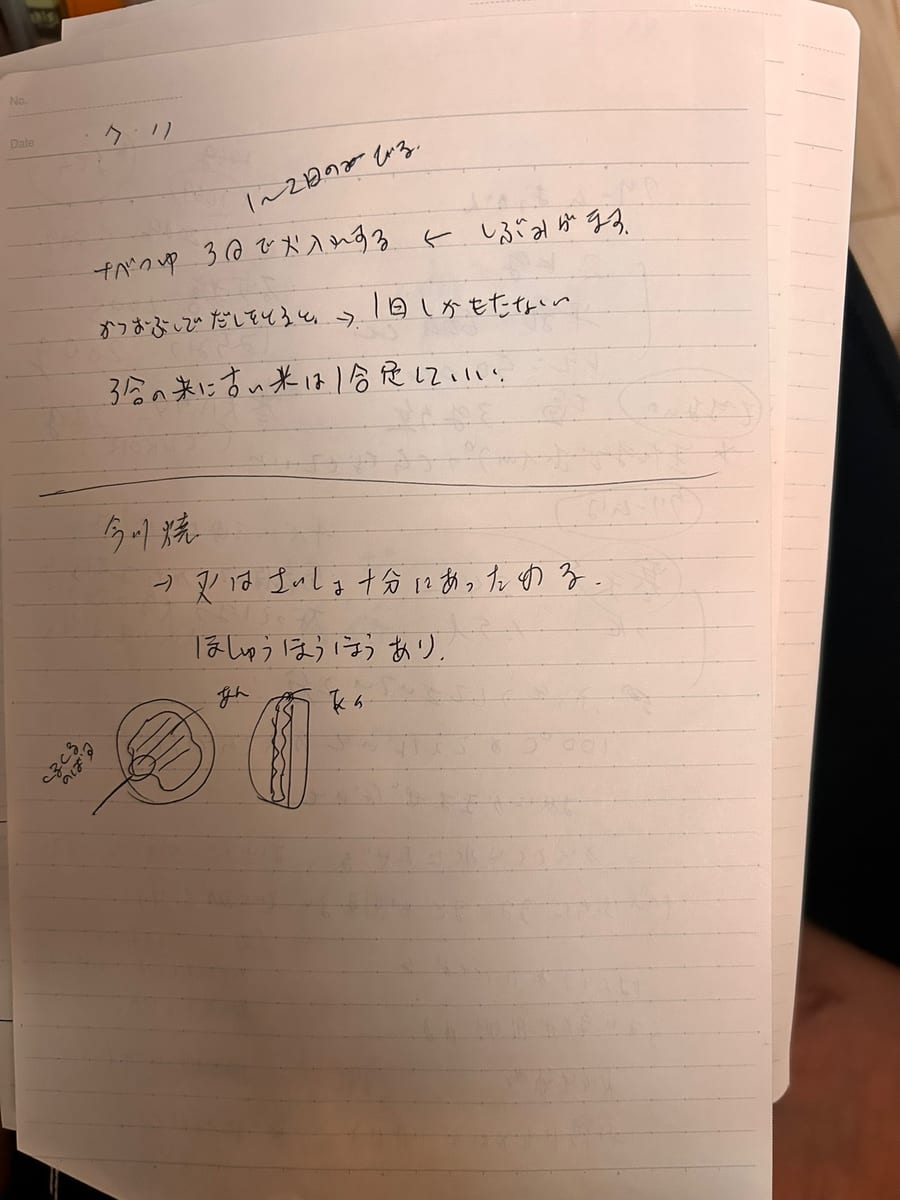 No.
Date
1〜2日のびる.
なべつゆ 3日で火入れする ← しぶみがまる.
かつおぶしでだしをとると, → 1日しかもたない
3合の米に古い米は1合足していい.
今川焼
→ 又はさいしょ十分にあっためる.
ほしゅうほうほうあり.
あん
あん
くるくる
のばす